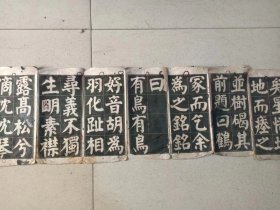 地而瘞之
並樹碣其
前題曰鶴
冢而乞余
為之銘銘
曰
有鳥有鳥
好音胡為
羽化趾相
尋義不獨
生明素襟
露高松兮
滴沈沈琴